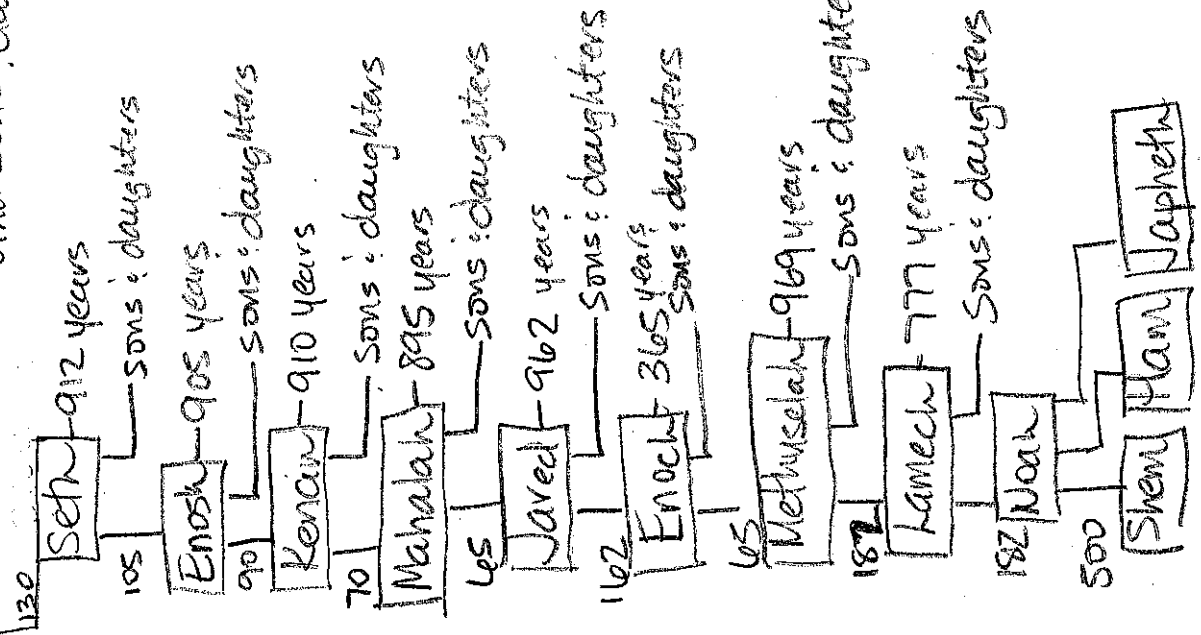 130
Seth - 912 years
Sons & daughters
105
Enosh - 905 years
Sons & daughters
90
Kenan - 910 years
Sons & daughters
70
Mahalah - 895 years
Sons & daughters
65
Jared - 962 years
Sons & daughters
162
Enoch - 365 years
Sons & daughters
65
Methuselah - 969 years
Sons &
187
Lamech - 777 years
Sons & daughters
182
Noah
500
Shem
Ham
Japheth